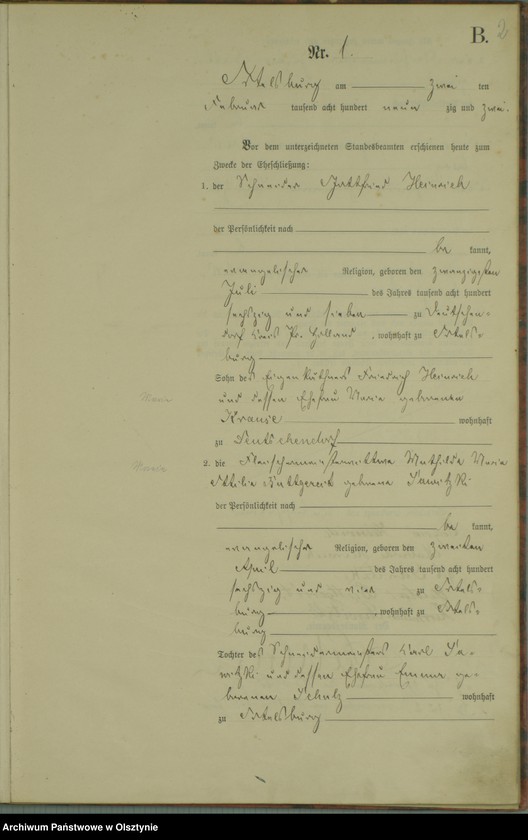 B. 2
Nr. 1.
Ortelsburg am zwei ten
Februar tausend acht hundert neun zig und zwei.
Vor dem unterzeichneten Standesbeamten erschienen heute zum
Zwecke der Eheschließung:
1. der Schneider Gottfried Heinrich
der Persönlichkeit nach
be kannt,
evangelischer Religion, geboren den zwanzigsten
Juli des Jahres tausend acht hundert
sechszig und sieben zu Deutschen-
dorf Kreis Pr. Holland, wohnhaft zu Ortels-
burg
Sohn des Eigenkäthners Friedrich Heinrich
und dessen Ehefrau Maria geborenen
Krause wohnhaft
zu Deutschendorf
Maria
2. die Fleischermeisterwittwe Mathilde Maria
Ottilie Buttgereit geborene Sawitzki
der Persönlichkeit nach
be kannt,
evangelischer Religion, geboren den zweiten
April des Jahres tausend acht hundert
sechszig und vier zu Ortels-
burg, wohnhaft zu Ortels-
burg
Tochter des Schneidermeisters Karl Sa-
witzki und dessen Ehefrau Emma ge-
borenen Schulz wohnhaft
zu Ortelsburg
Archiwum Państwowe w Olsztynie